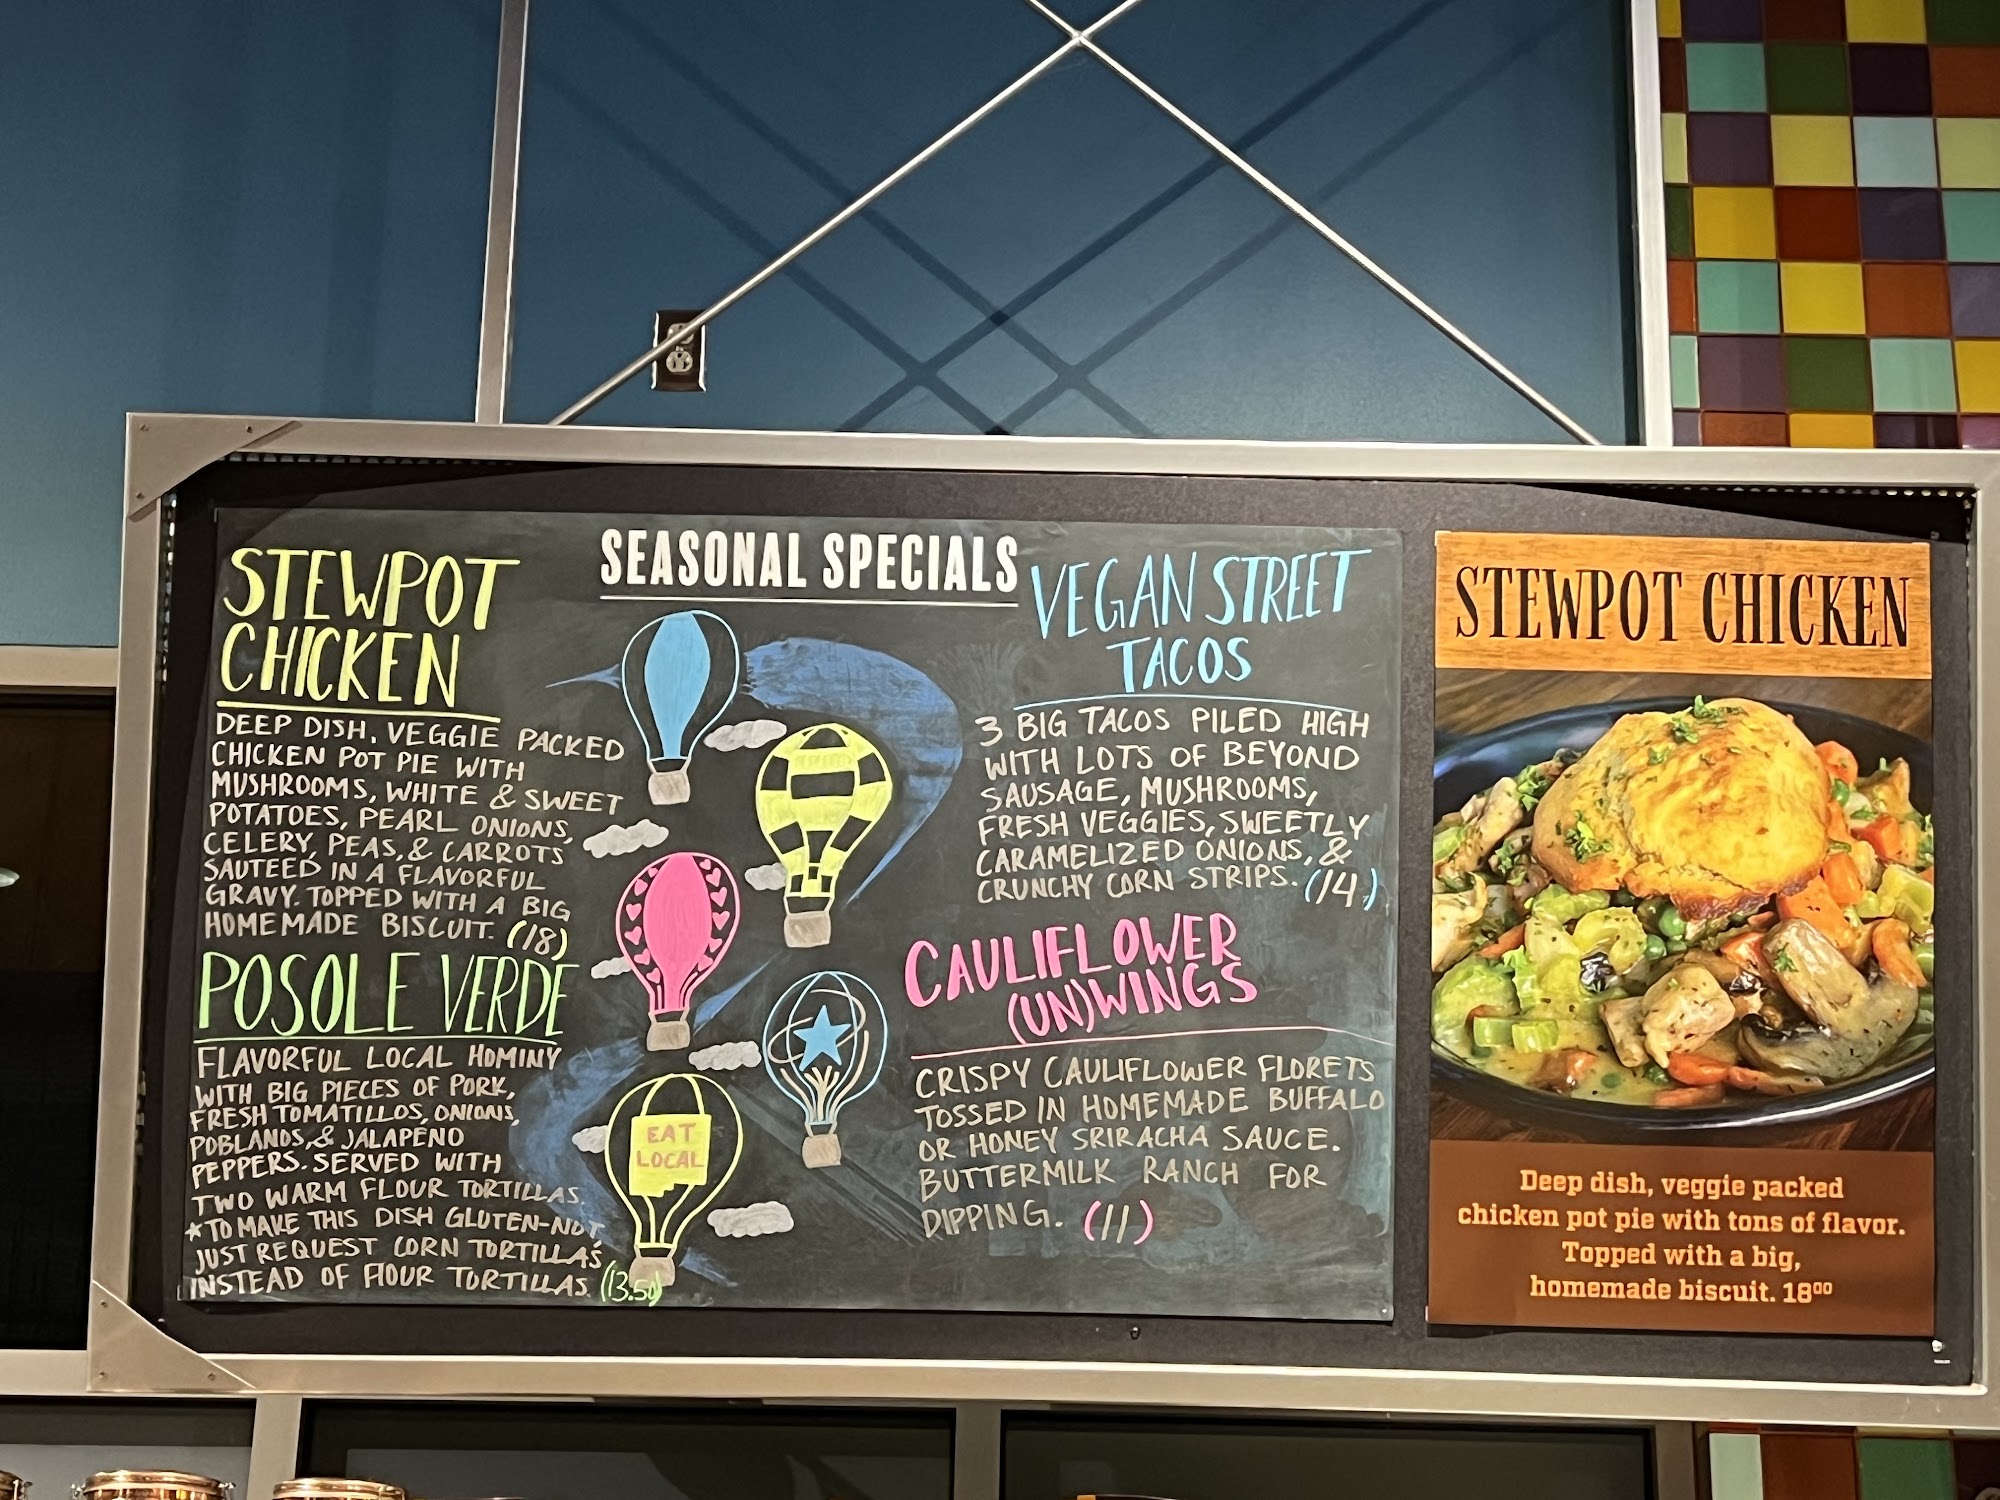 SEASONAL SPECIALS
STEWPOT
CHICKEN
DEEP DISH, VEGGIE PACKED
CHICKEN POT PIE WITH
MUSHROOMS, WHITE & SWEET
POTATOES, PEARL ONIONS,
CELERY, PEAS, & CARROTS
SAUTEED IN A FLAVORFUL
GRAVY. TOPPED WITH A BIG
HOMEMADE BISCUIT. (18)
POSOLE VERDE
FLAVORFUL LOCAL HOMINY
WITH BIG PIECES OF PORK,
FRESH TOMATILLOS, ONIONS,
POBLANOS, & JALAPEÑO
PEPPERS. SERVED WITH
TWO WARM FLOUR TORTILLAS
*TO MAKE THIS DISH GLUTEN-NOT,
JUST REQUEST CORN TORTILLAS
INSTEAD OF FLOUR TORTILLAS. (13.50)
EAT
LOCAL
VEGAN STREET
TACOS
3 BIG TACOS PILED HIGH
WITH LOTS OF BEYOND
SAUSAGE, MUSHROOMS,
FRESH VEGGIES, SWEETLY
CARAMELIZED ONIONS, &
CRUNCHY CORN STRIPS. (14)
CAULIFLOWER
(UN)WINGS
CRISPY CAULIFLOWER FLORETS
TOSSED IN HOMEMADE BUFFALO
OR HONEY SRIRACHA SAUCE.
BUTTERMILK RANCH FOR
DIPPING. (11)
STEWPOT CHICKEN
Deep dish, veggie packed
chicken pot pie with tons of flavor.
Topped with a big,
homemade biscuit. 18⁰⁰